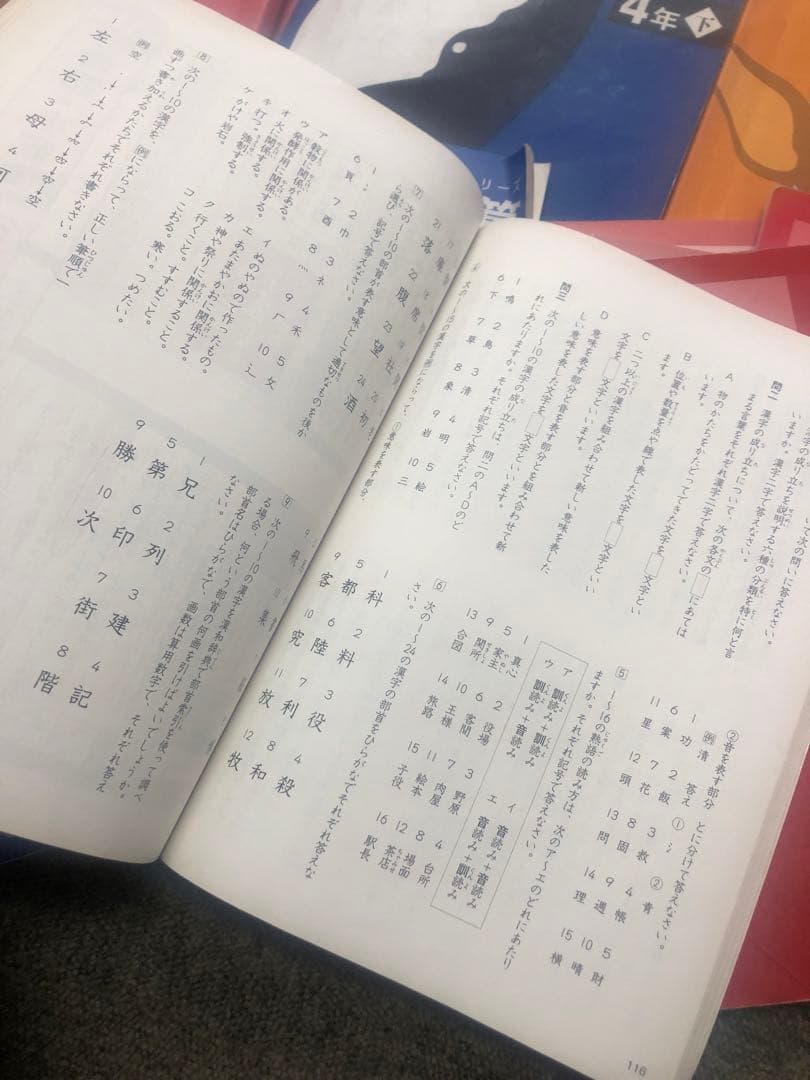 4年 下
リーズ
て次の問いに答えなさい。
字の成り立ちを説明する六種の分類を特に何と言
いますか。漢字二字で答えなさい。
問二 漢字の成り立ちについて、次の各文の□にあては
まる言葉をそれぞれ漢字二字で答えなさい。
A 物のかたちをかたどってできた文字を□文字とい
います。
B 位置や数量を点や線で表した文字を□文字とい
います。
C 二つ以上の漢字を組み合わせて新しい意味を表した
文字を□文字といいます。
D 意味を表す部分と音を表す部分とを組み合わせて新
しい意味を表した文字を□文字といいます。
問三 次の1〜10の漢字の成り立ちは、問二のA〜Dのど
れにあたりますか。それぞれ記号で答えなさい。
1 鳴 2 鳥 3 清 4 明 5 絵
6 下 7 草 8 象 9 岩 10 三
②音を表す部分 とに分けて答えなさい。
例 清 答え ① 氵 ② 青
1 功 2 飯 3 救 4 帳 5 財
6 案 7 花 8 固 9 週 10 晴
11 里 12 頭 13 問 14 理 15 横
5 1〜16の熟語の読み方は、次のア〜エのどれにあたり
ますか。それぞれ記号で答えなさい。
ア 訓読み+訓読み イ 音読み+音読み
ウ 訓読み+音読み エ 音読み+訓読み
1 真心 2 役場 3 野原 4 台所
5 家主 6 客間 7 肉屋 8 場面
9 関所 10 王様 11 絵本 12 茶店
13 合図 14 旅路 15 子役 16 駅長
6 次の1〜24の漢字の部首をひらがなでそれぞれ答えな
さい。
1 科 2 料 3 役 4 殺
5 都 6 陸 7 利 8 和
9 客 10 究 11 放 12 牧
116
21 落 22 腹 23 望 24 酒
7 次の1〜10の部首が表す意味として適切なものを後か
ら選び、記号で答えなさい。
1 冫 2 巾 3 ネ 4 禾 5 攵
6 頁 7 酉 8 灬 9 厂 10 辶
ア 穀物に関係がある。 イ ぬのやぬので作ったもの。
ウ 発酵作用に関係する。 エ あたまやかおに関係する。
オ 火に関係する。 カ 神や祭りに関係する。
キ 打つ。強制する。 ク 行くこと。すすむこと。
ケ がけや岩石。 コ こおる。寒い。つめたい。
8 次の1〜10の漢字を、例にならって、正しい筆順で一
画ずつ書き加えるかたちでそれぞれ書きなさい。
例 空
1 左 2 右 3 母 4 可
9 次の1〜10の漢字を漢和辞典で部首索引を使って調べ
る場合、何という部首の何画を引けばよいでしょうか。
部首名はひらがなで、画数は算用数字で、それぞれ答え
なさい。
1 兄 2 列 3 建 4 記
5 第 6 印 7 街 8 階
9 勝 10 次